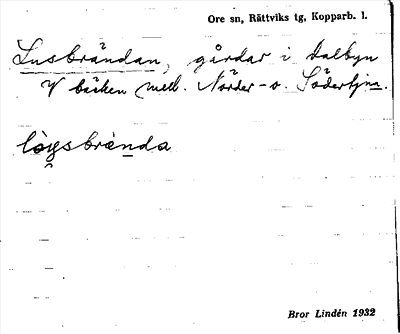 Ore sn, Rättviks tg, Kopparb. l.
Lusbrändan, gårdar i Dalbyn
V bäcken mell. Norder- o. Södertjärn.
lòysbrènda
Bror Lindén 1932